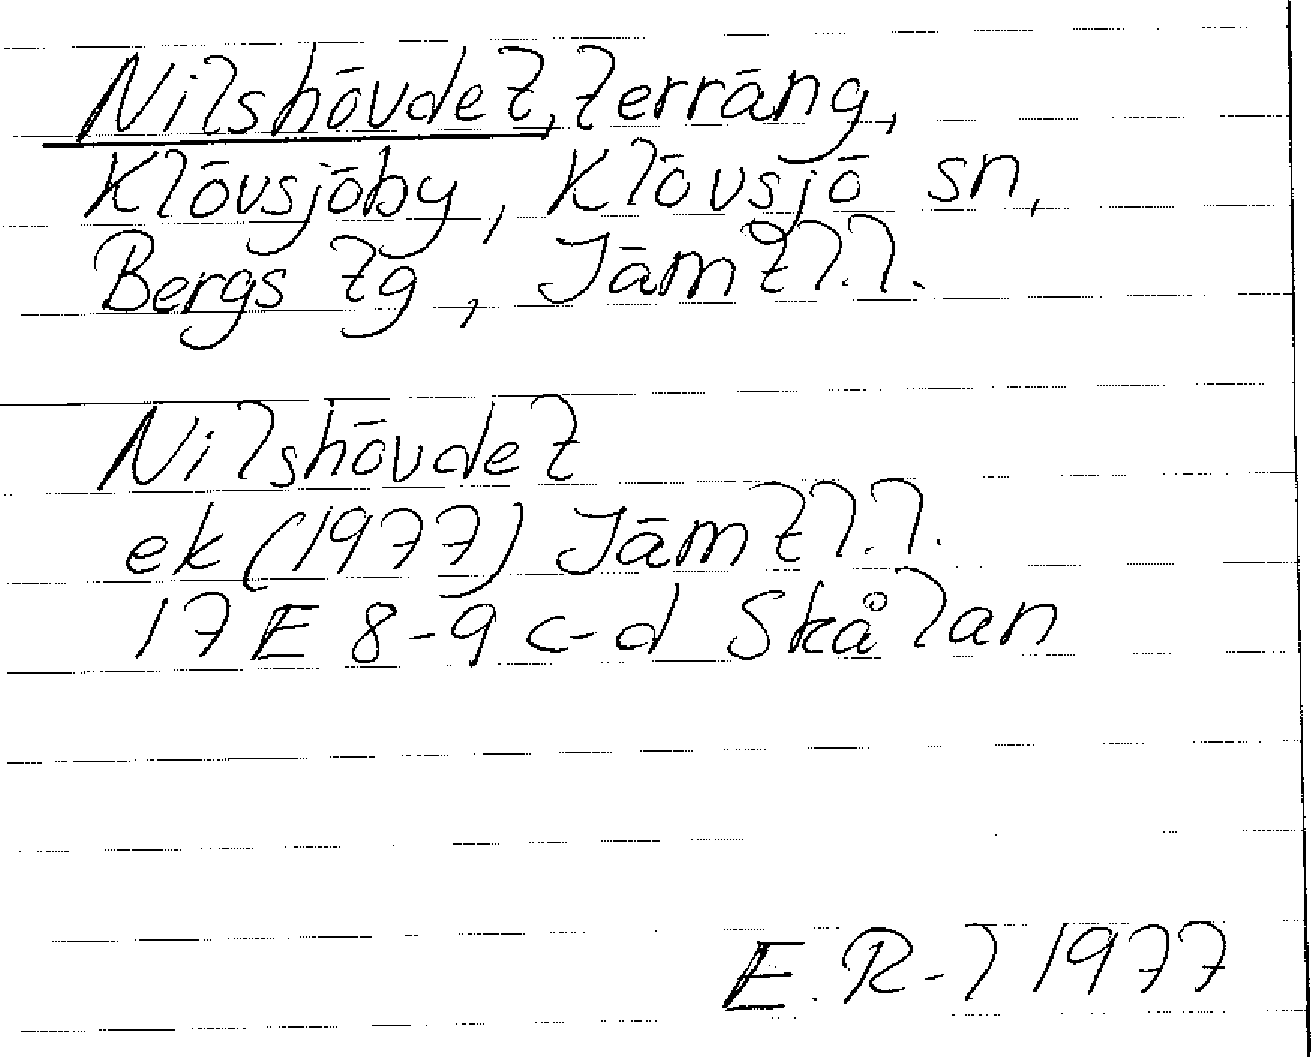 Nilshövdet, terräng,
Klövsjöby, Klövsjö sn,
Bergs tg, Jämtl.l.
Nilshövdet
ek (1977) Jämtl.l.
17E 8-9 c-d Skålan
E. R-l 1977